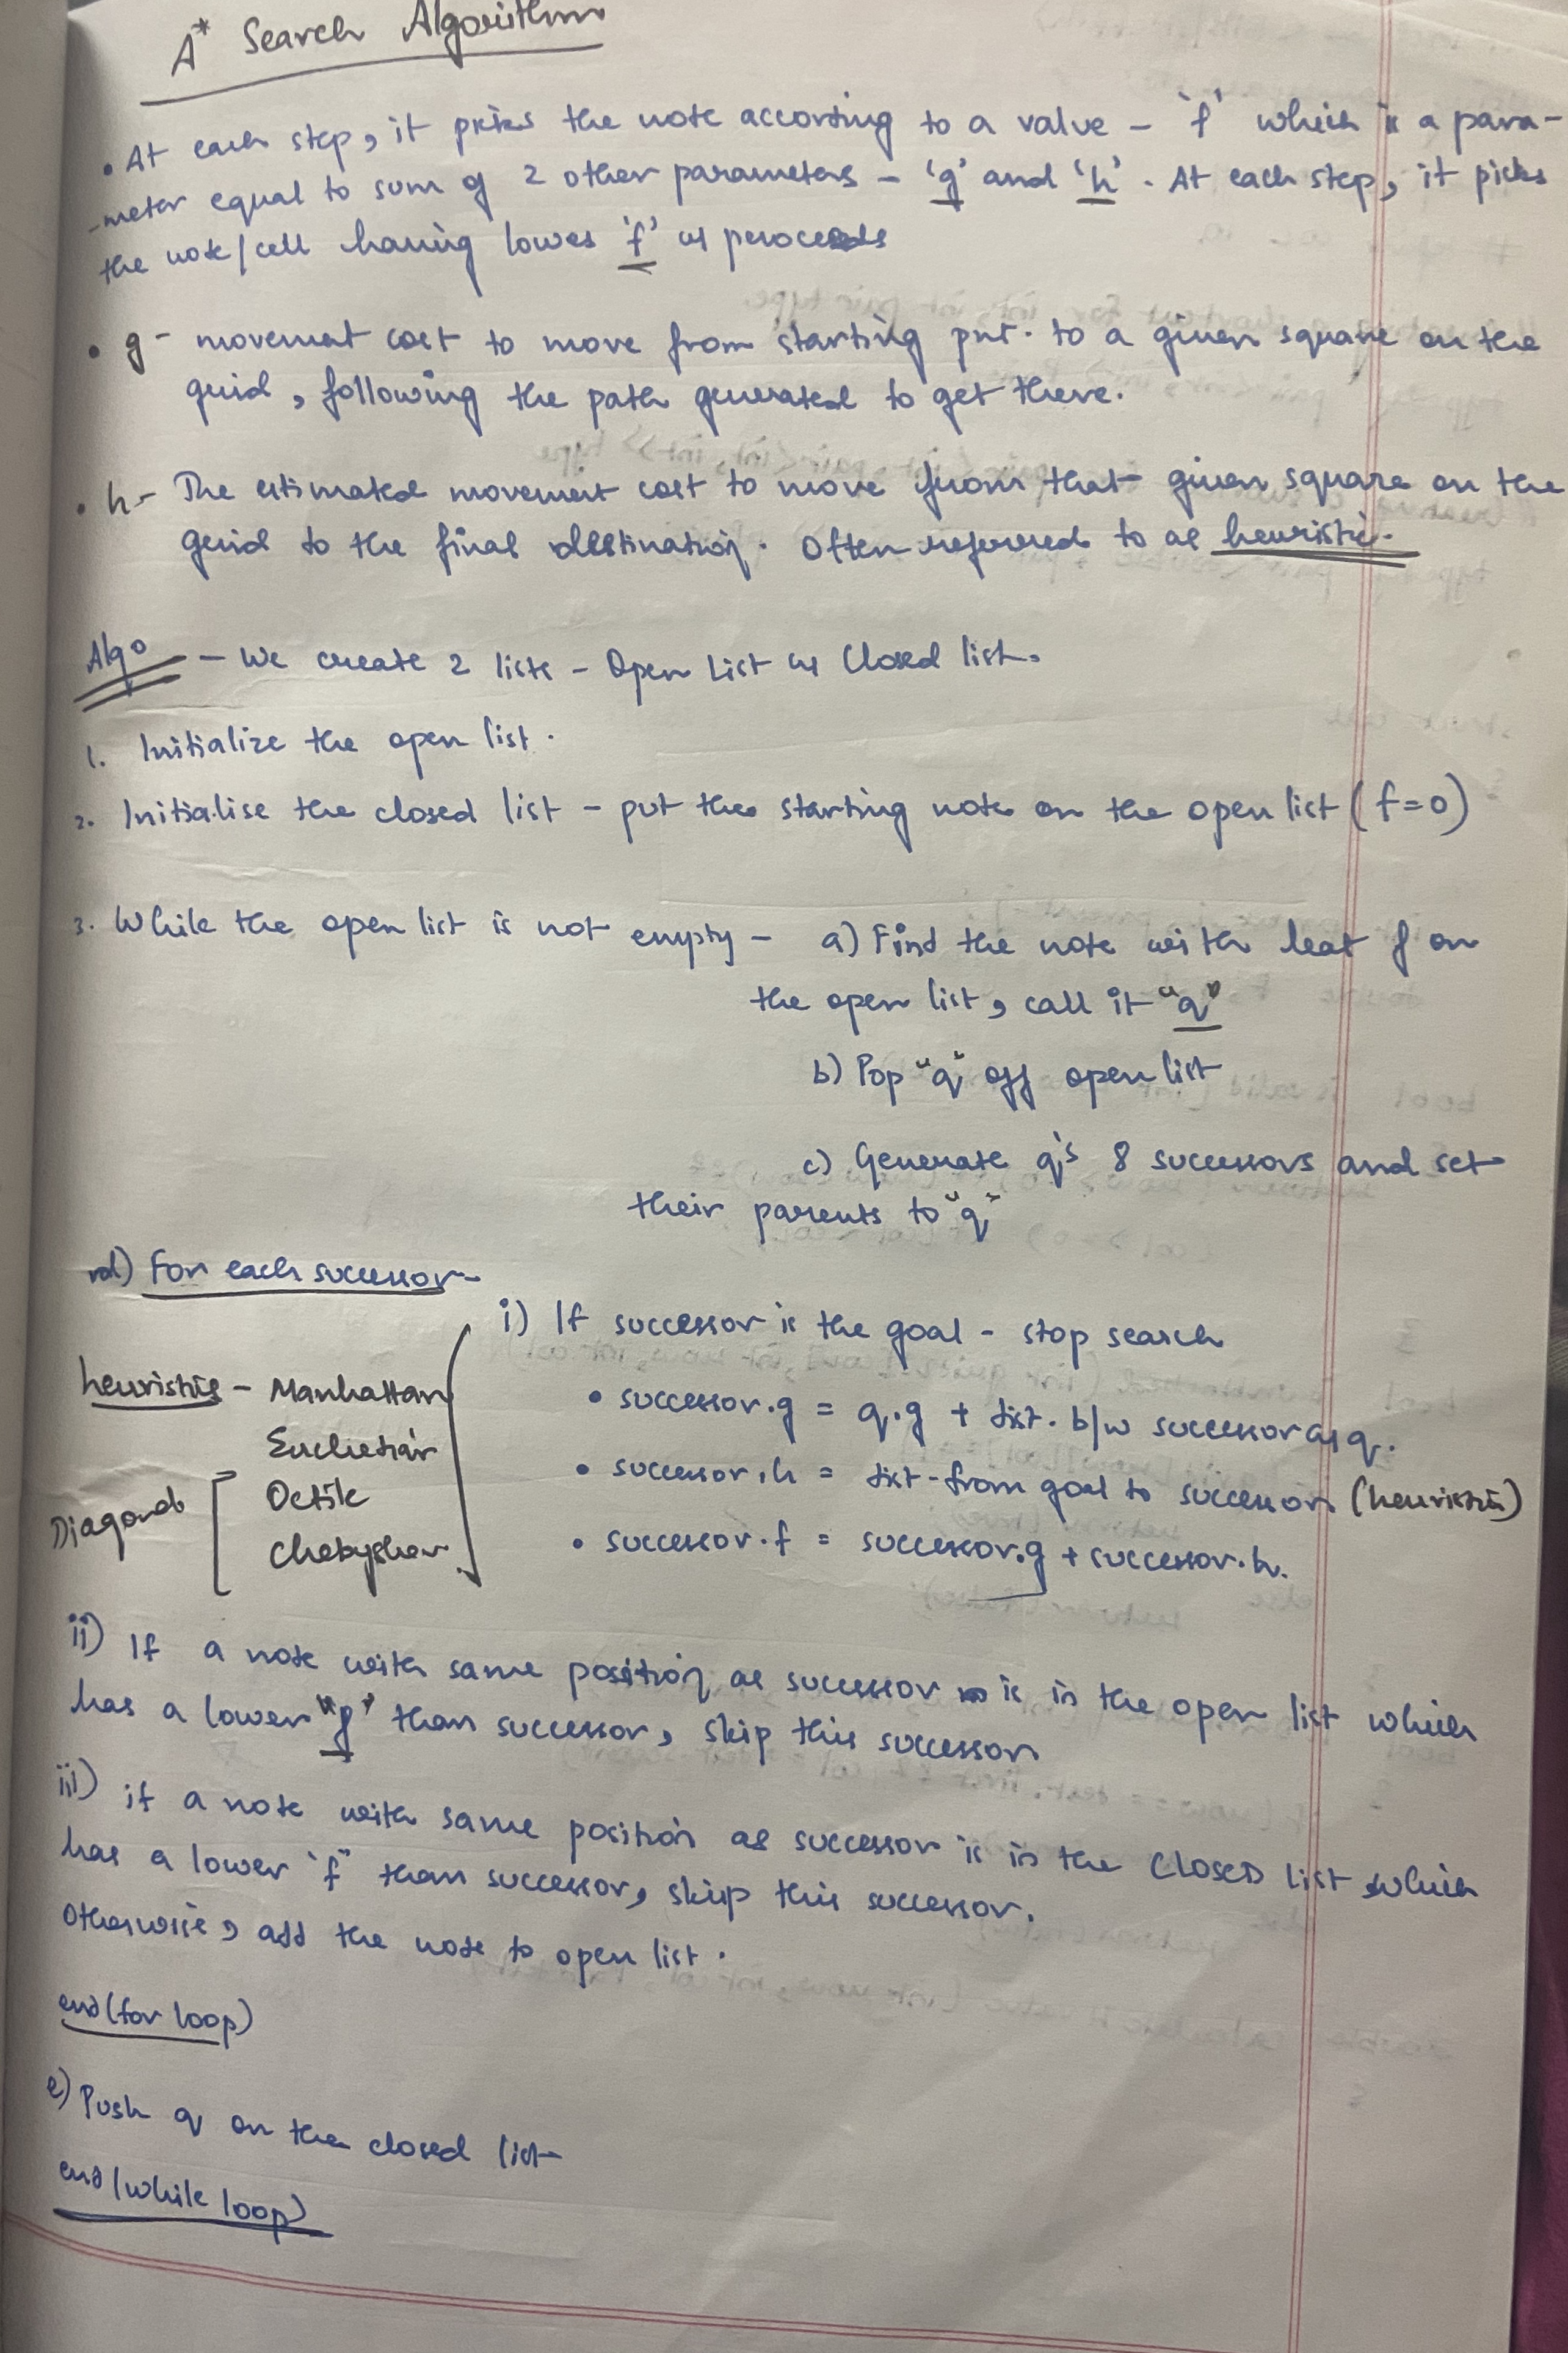 A* Search Algorithm
• At each step, it picks the note according to a value - 'f' which is a para-
-meter equal to sum of 2 other parameters - 'g' and 'h'. At each step, it picks
the note/cell having lowes 'f' & proceeds
• g - movement cost to move from starting pnt. to a given square on the
grid, following the path generated to get there.
• h - The estimated movement cost to move from that given square on the
grid to the final destination. Often referred to as heuristic.
Algo - We create 2 lists - Open List & Closed list.
1. Initialize the open list.
2. Initialise the closed list - put the starting note on the open list (f=0)
3. While the open list is not empty - a) Find the note with leat f on
the open list, call it "q"
b) Pop "q" off open list
c) Generate q's 8 successors and set
their parents to "q"
d) For each successor -
i) If successor is the goal - stop search
• successor.g = q.g + dist. b/w successor & q.
• successor.h = dist-from goal to successor (heuristic)
• successor.f = successor.g + successor.h.
heuristis - Manhattan
Euclidian
Diagonal Octile
Chebyshev
ii) If a note with same position as successor is in the open list which
has a lower "f" than successor, skip this successor
iii) if a note with same position as successor is in the CLOSED list which
has a lower "f" than successor, skip this successor.
Otherwise, add the note to open list.
end (for loop)
e) Push q on the closed list
end (while loop)